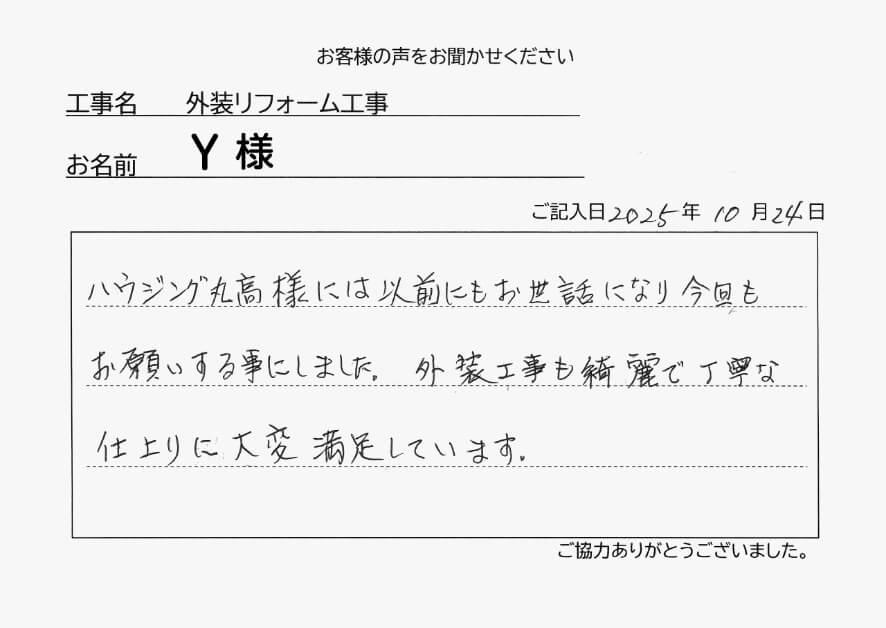 お客様の声をお聞かせください
工事名 外装リフォーム工事
お名前 Y 様
ご記入日 2025 年 10 月 24 日
ハウジング丸高様には以前にもお世話になり今回も
お願いする事にしました。外装工事も綺麗で丁寧な
仕上りに大変満足しています。
ご協力ありがとうございました。